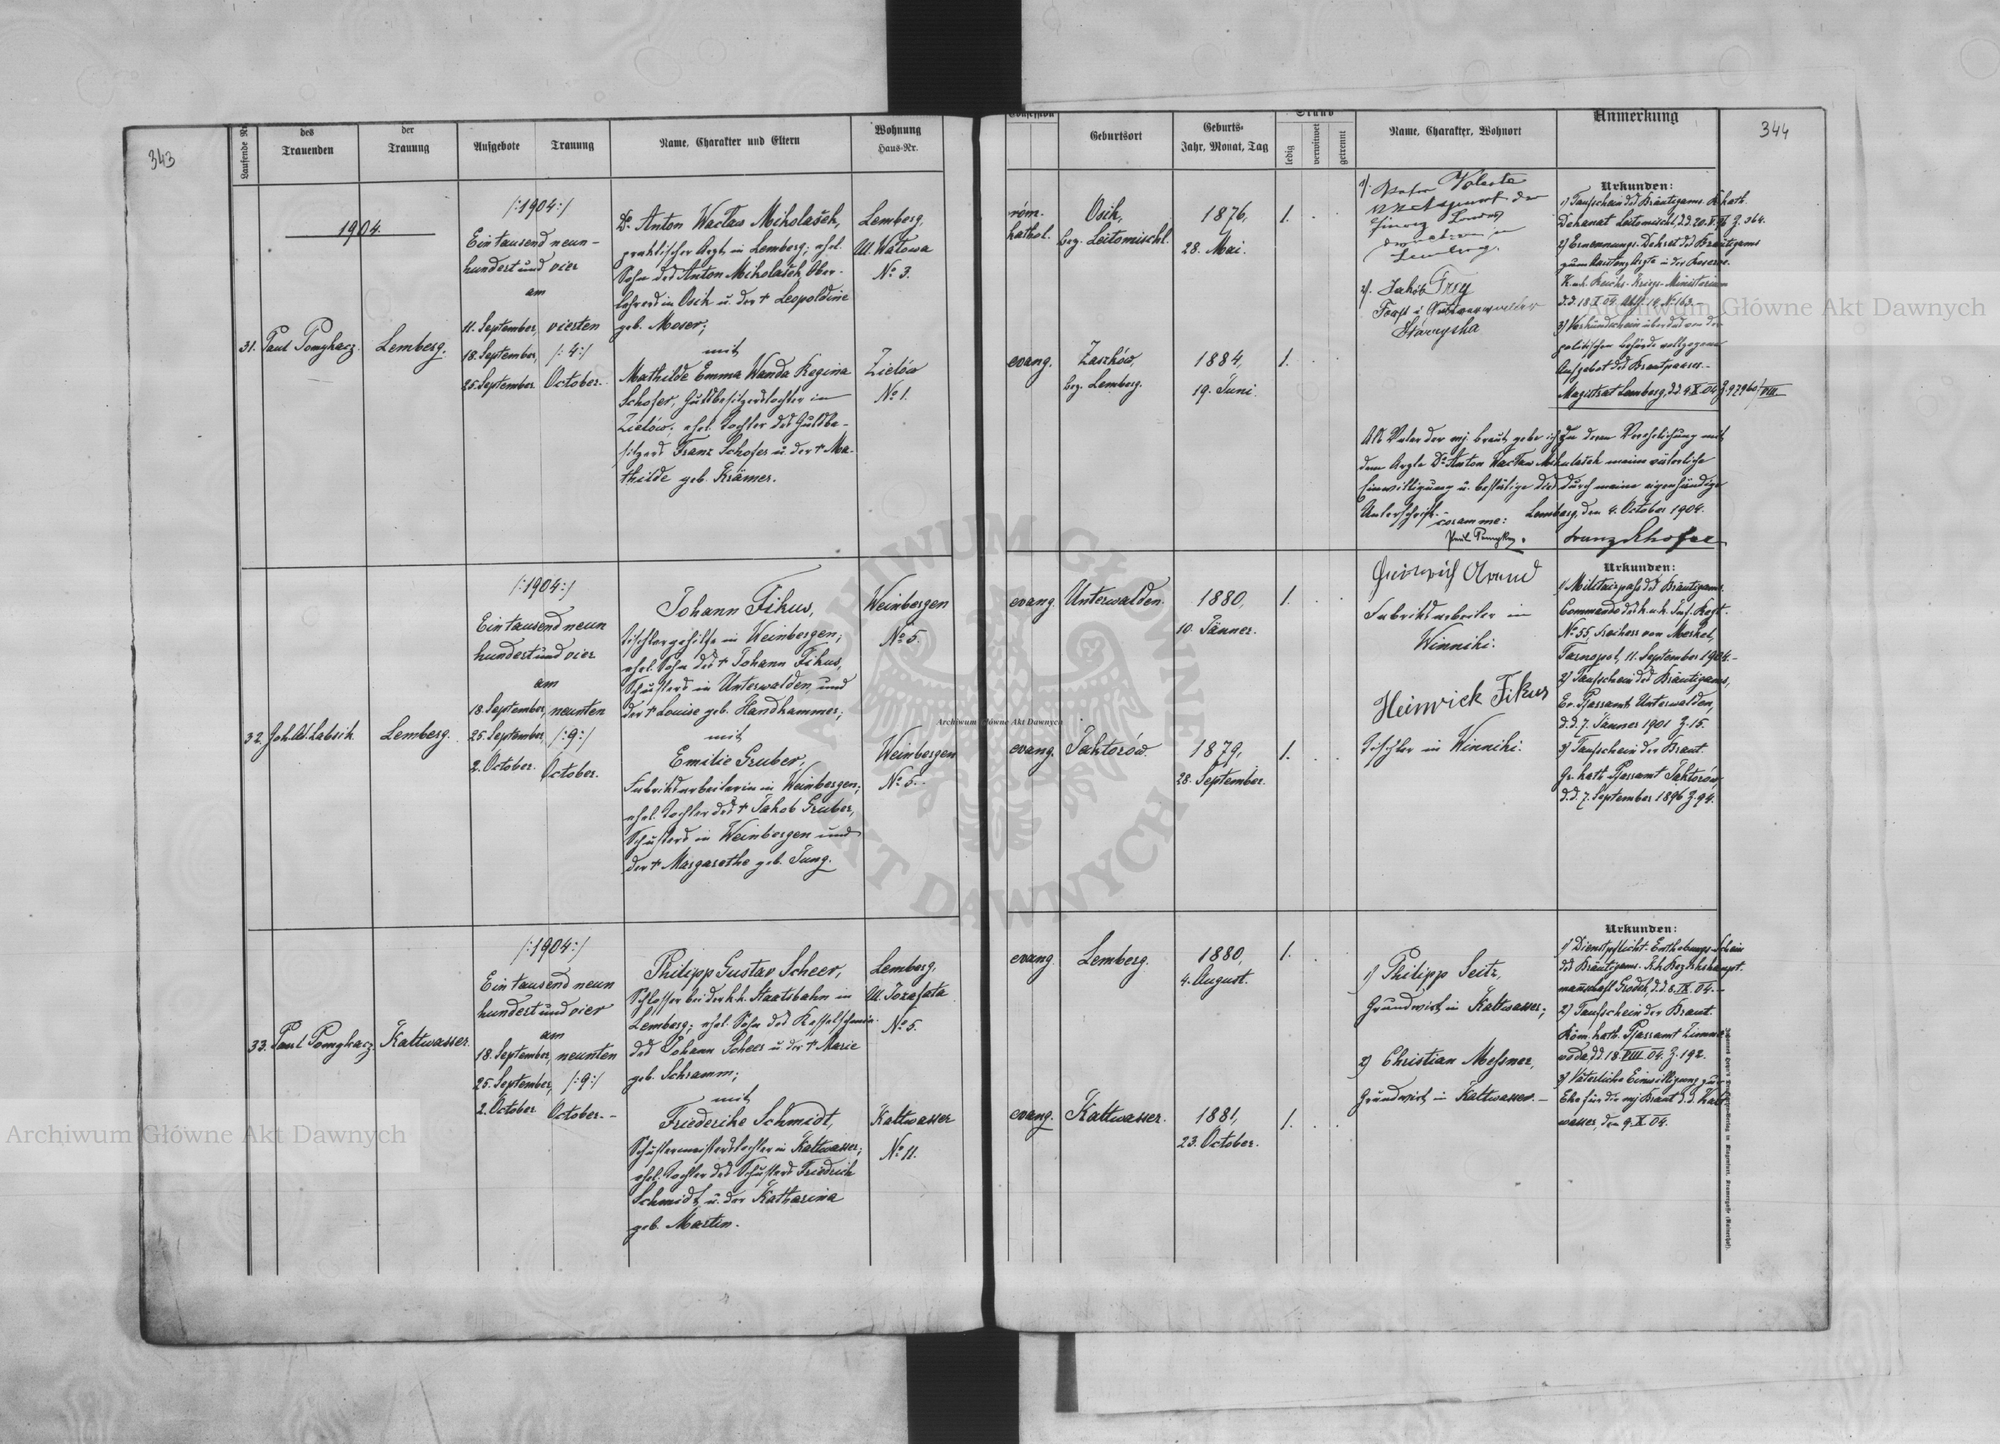 343
Laufende Nr.
des
Trauenden
der
Trauung
Aufgebote
Trauung
Name, Charakter und Eltern
Wohnung
Haus-Nr.
1904.
31.
Paul Pomykacz.
Lemberg.
/:1904:/
Ein tausend neun-
hundert und vier
am
11. September, vierten
18. September, /:4:/
25. September. October.
Dr. Anton Wacław Mikolašek,
praktischer Arzt in Lemberg; ehel.
Sohn des Anton Mikolašek, Ober-
lehrers in Osik u. der † Leopoldine
geb. Moser;
mit
Mathilde Emma Wanda Regina
Schofer, Gutsbesitzerstochter in
Zielów; ehel. Tochter des Gutsbe-
sitzers Franz Schofer u. der † Ma-
thilde geb. Krämer.
Lemberg,
Ul. Wałowa
No 3.
Zielów
No 1.
32.
Joh. Labsik.
Lemberg.
/:1904:/
Ein tausend neun
hundert und vier
am
18. September, neunten
25. September, /:9:/
2. October. October.
Johann Fikus,
Tischlergehilfe in Weinbergen;
ehel. Sohn des † Johann Fikus,
Schusters in Unterwalden, und
der † Louise geb. Handhammer;
mit
Emilie Gruber,
Fabriksarbeiterin in Weinbergen;
ehel. Tochter des † Jakob Gruber,
Schusters in Weinbergen und
der † Margarethe geb. Jung.
Weinbergen
No 5.
Weinbergen
No 5.
33.
Paul Pomykacz.
Kaltwasser.
/:1904:/
Ein tausend neun
hundert und vier
am
18. September, neunten
25. September, /:9:/
2. October October.-
Philipp Gustav Scheer,
Schlosser bei der k. k. Staatsbahn in
Lemberg; ehel. Sohn des Kesselschmie-
des Johann Scheer u. der † Marie
geb. Schramm;
mit
Friederike Schmidt,
Schustermeisterstochter in Kaltwasser;
ehel. Tochter des Schusters Friedrich
Schmidt u. der Katharina
geb. Martin.
Lemberg,
Ul. Jozafata
No 5.
Kaltwasser
No 11.
344
Confession
Geburtsort
Geburts-
Jahr, Monat, Tag
Stand
ledig
verwitwet
getrennt
Name, Charakter, Wohnort
Anmerkung
röm.
kathol.
Osik,
bez. Leitomischl.
1876,
28. Mai.
1.
evang.
Zaszków,
bez. Lemberg.
1884,
19. Juni.
1.
1/.
2/. Jakob Frey
Forst u. Gutsverwalter
Urkunden:
1) Taufschein des Bräutigams R. kath.
Dekanat Leitomischl, d.d.
2) Ernennungs-Dekret des Bräutigams
zum Assistenzarzte in der Reserve.
K. u. k. Reichs-Kriegs-Ministerium
3) Verkündschein über das von der
politischen Behörde vollzogene
Aufgebot des Brautpaares.-
Magistrat Lemberg, d.d.
Als Vater der mj. Braut gebe ich zu deren Verehelichung mit
dem Arzte Dr. Anton Wacław Mikolašek meine väterliche
Einwilligung u. bestätige dies durch meine eigenhändige
Unterschrift.- Lemberg, den 4. October 1904.
coram me:
Franz Schofer
evang.
Unterwalden.
1880,
10. Jänner.
1.
evang.
Jaktorów
1879,
28. September.
1.
Heinrich
Fabriksarbeiter in
Winniki.
Heinrick Fikus
Tischler in Winniki.
Urkunden:
1) Militairpass des Bräutigams.
Commando des k. u. k. Inf. Regt.
No 55, Freiherr von Merkel,
Tarnopol, 11. September 1904.-
2) Taufschein des Bräutigams,
Ev. Pfarramt Unterwalden,
d.d. 7. Jänner 1901 Z. 15.
3) Taufschein der Braut.
Gr. kath. Pfarramt Jaktorów,
d.d. 7. September 1896 Z. 94.
evang.
Lemberg.
1880,
4. August.
1.
evang.
Kaltwasser.
1881,
23. October.
1.
1) Philipp Seitz,
Grundwirt in Kaltwasser;
2) Christian Messner,
Grundwirt in Kaltwasser.-
Urkunden:
1) Dienstpflicht-Enthebungs-Schein
des Bräutigams. K.k. Bez. Hauptmannschaft Grodek, d.d. 8. IX. 04.-
2) Taufschein der Braut.
Röm. kath. Pfarramt Zimna
woda, d.d. 18. VIII. 04. Z. 192.
3) Väterliche Einwilligung zur
Ehe für die mj. Braut d.d. Kalt-
wasser, den 9. X. 04.
Archiwum Główne Akt Dawnych
Archiwum Główne Akt Dawnych
Archiwum Główne Akt Dawnych
ARCHIWUM GŁÓWNE AKT DAWNYCH